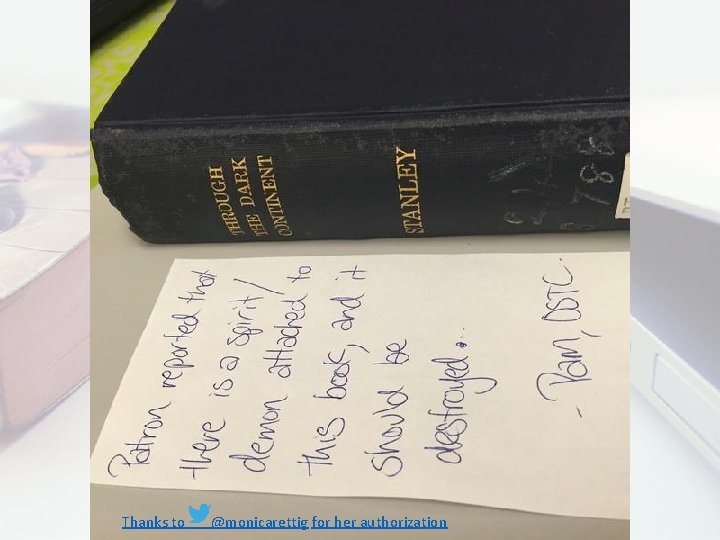 THROUGH
THE DARK
CONTINENT
STANLEY
788
Patron reported that
there is a spirit/
demon attached to
this book, and it
should be
destroyed...
- Pam,
Thanks to @monicarettig for her authorization